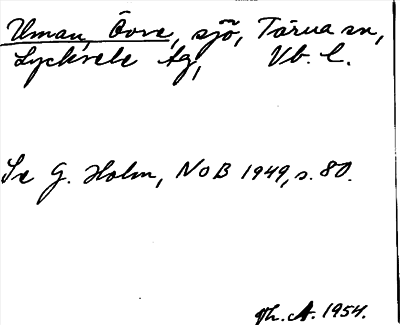 Uman, Övre, sjö, Tärna sn,
Lycksele lg, Vb. l.
Se G. Holm, NoB 1949, s. 80.
Th. A. 1954.